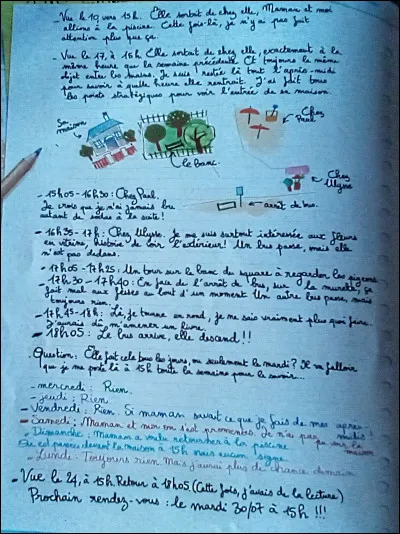 - Vue le 10, vers 15h. Elle sortait de chez elle, Maman et moi
allions à la piscine. Cette fois-là, je n'y ai pas fait
attention plus que ça.
- Vue le 17, à 15h Elle sortait de chez elle, exactement à la
même heure que la semaine précédente. Et toujours le même
objet entre les mains. Je suis restée là tout l'après-midi
pour savoir à quelle heure elle rentrait. J'ai fait tous
les points stratégiques pour voir l'entrée de sa maison.
Sa maison
le banc
Chez Paul
Chez Ulysse
arrêt de bus.
- 15h05 - 16h30 : Chez Paul.
Je crois que je n'ai jamais bu
autant de à la suite !
- 16h35 - 17h : Chez Ulysse. Je me suis surtout intéressée aux fleurs
en vitrine, histoire de voir l'extérieur ! Un bus passe, mais elle
n'est pas dedans.
- 17h05 - 17h25 : Un tour sur le banc du square à regarder les pigeons.
- 17h30 - 17h40 : En face de l'arrêt de bus, sur la murette, ça
fait mal aux fesses au bout d'un moment. Un autre bus passe, mais
toujours rien.
- 17h45 - 18h : Là, je tourne en rond, je ne sais vraiment plus quoi faire.
J'aurais dû m'amener un livre.
- 18h05 : Le bus arrive, elle descend !!
Question : Elle fait cela tous les jours, ou seulement le mardi ? Il va falloir
que je me poste là à 15h toute la semaine pour le savoir...
- mercredi : Rien.
- jeudi : Rien
- Vendredi : Rien. Si maman savait ce que je fais de mes après-
midis !
- Samedi : Maman et moi on s'est promenées. Je n'ai pas pu voir la
maison
- Dimanche : Maman a voulu retourner à la piscine
On est passées devant la maison à 15h mais aucun signe
- Lundi : Toujours rien. Mais j'aurai plus de chance demain
- Vue le 24, à 15h. Retour à 18h05 (Cette fois, j'avais de la lecture)
Prochain rendez-vous : le mardi 30/07 à 15h !!!